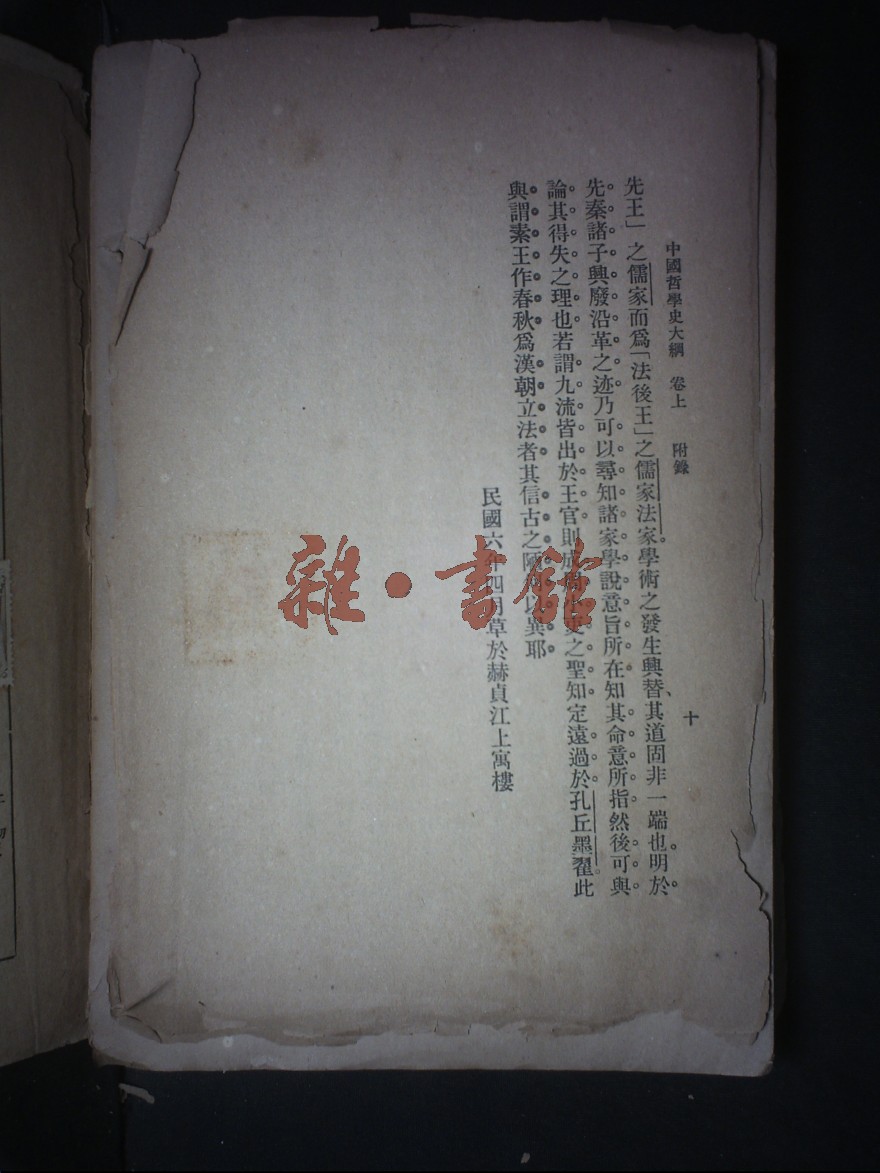 中國哲學史大綱 卷上 附錄 十
先王」之儒家而爲「法後王」之儒家法家。學術之發生興替、其道固非一端也。明於
先秦諸子興廢沿革之迹乃可以尋知諸家學說意旨所在知其命意所指然後可與
論其得失之理也若謂九流皆出於王官則成 之聖知定遠過於孔丘墨翟。此
與謂素王作春秋爲漢朝立法者其信古之陋 以異耶
民國六年四月草於赫貞江上寓樓
雜·書館